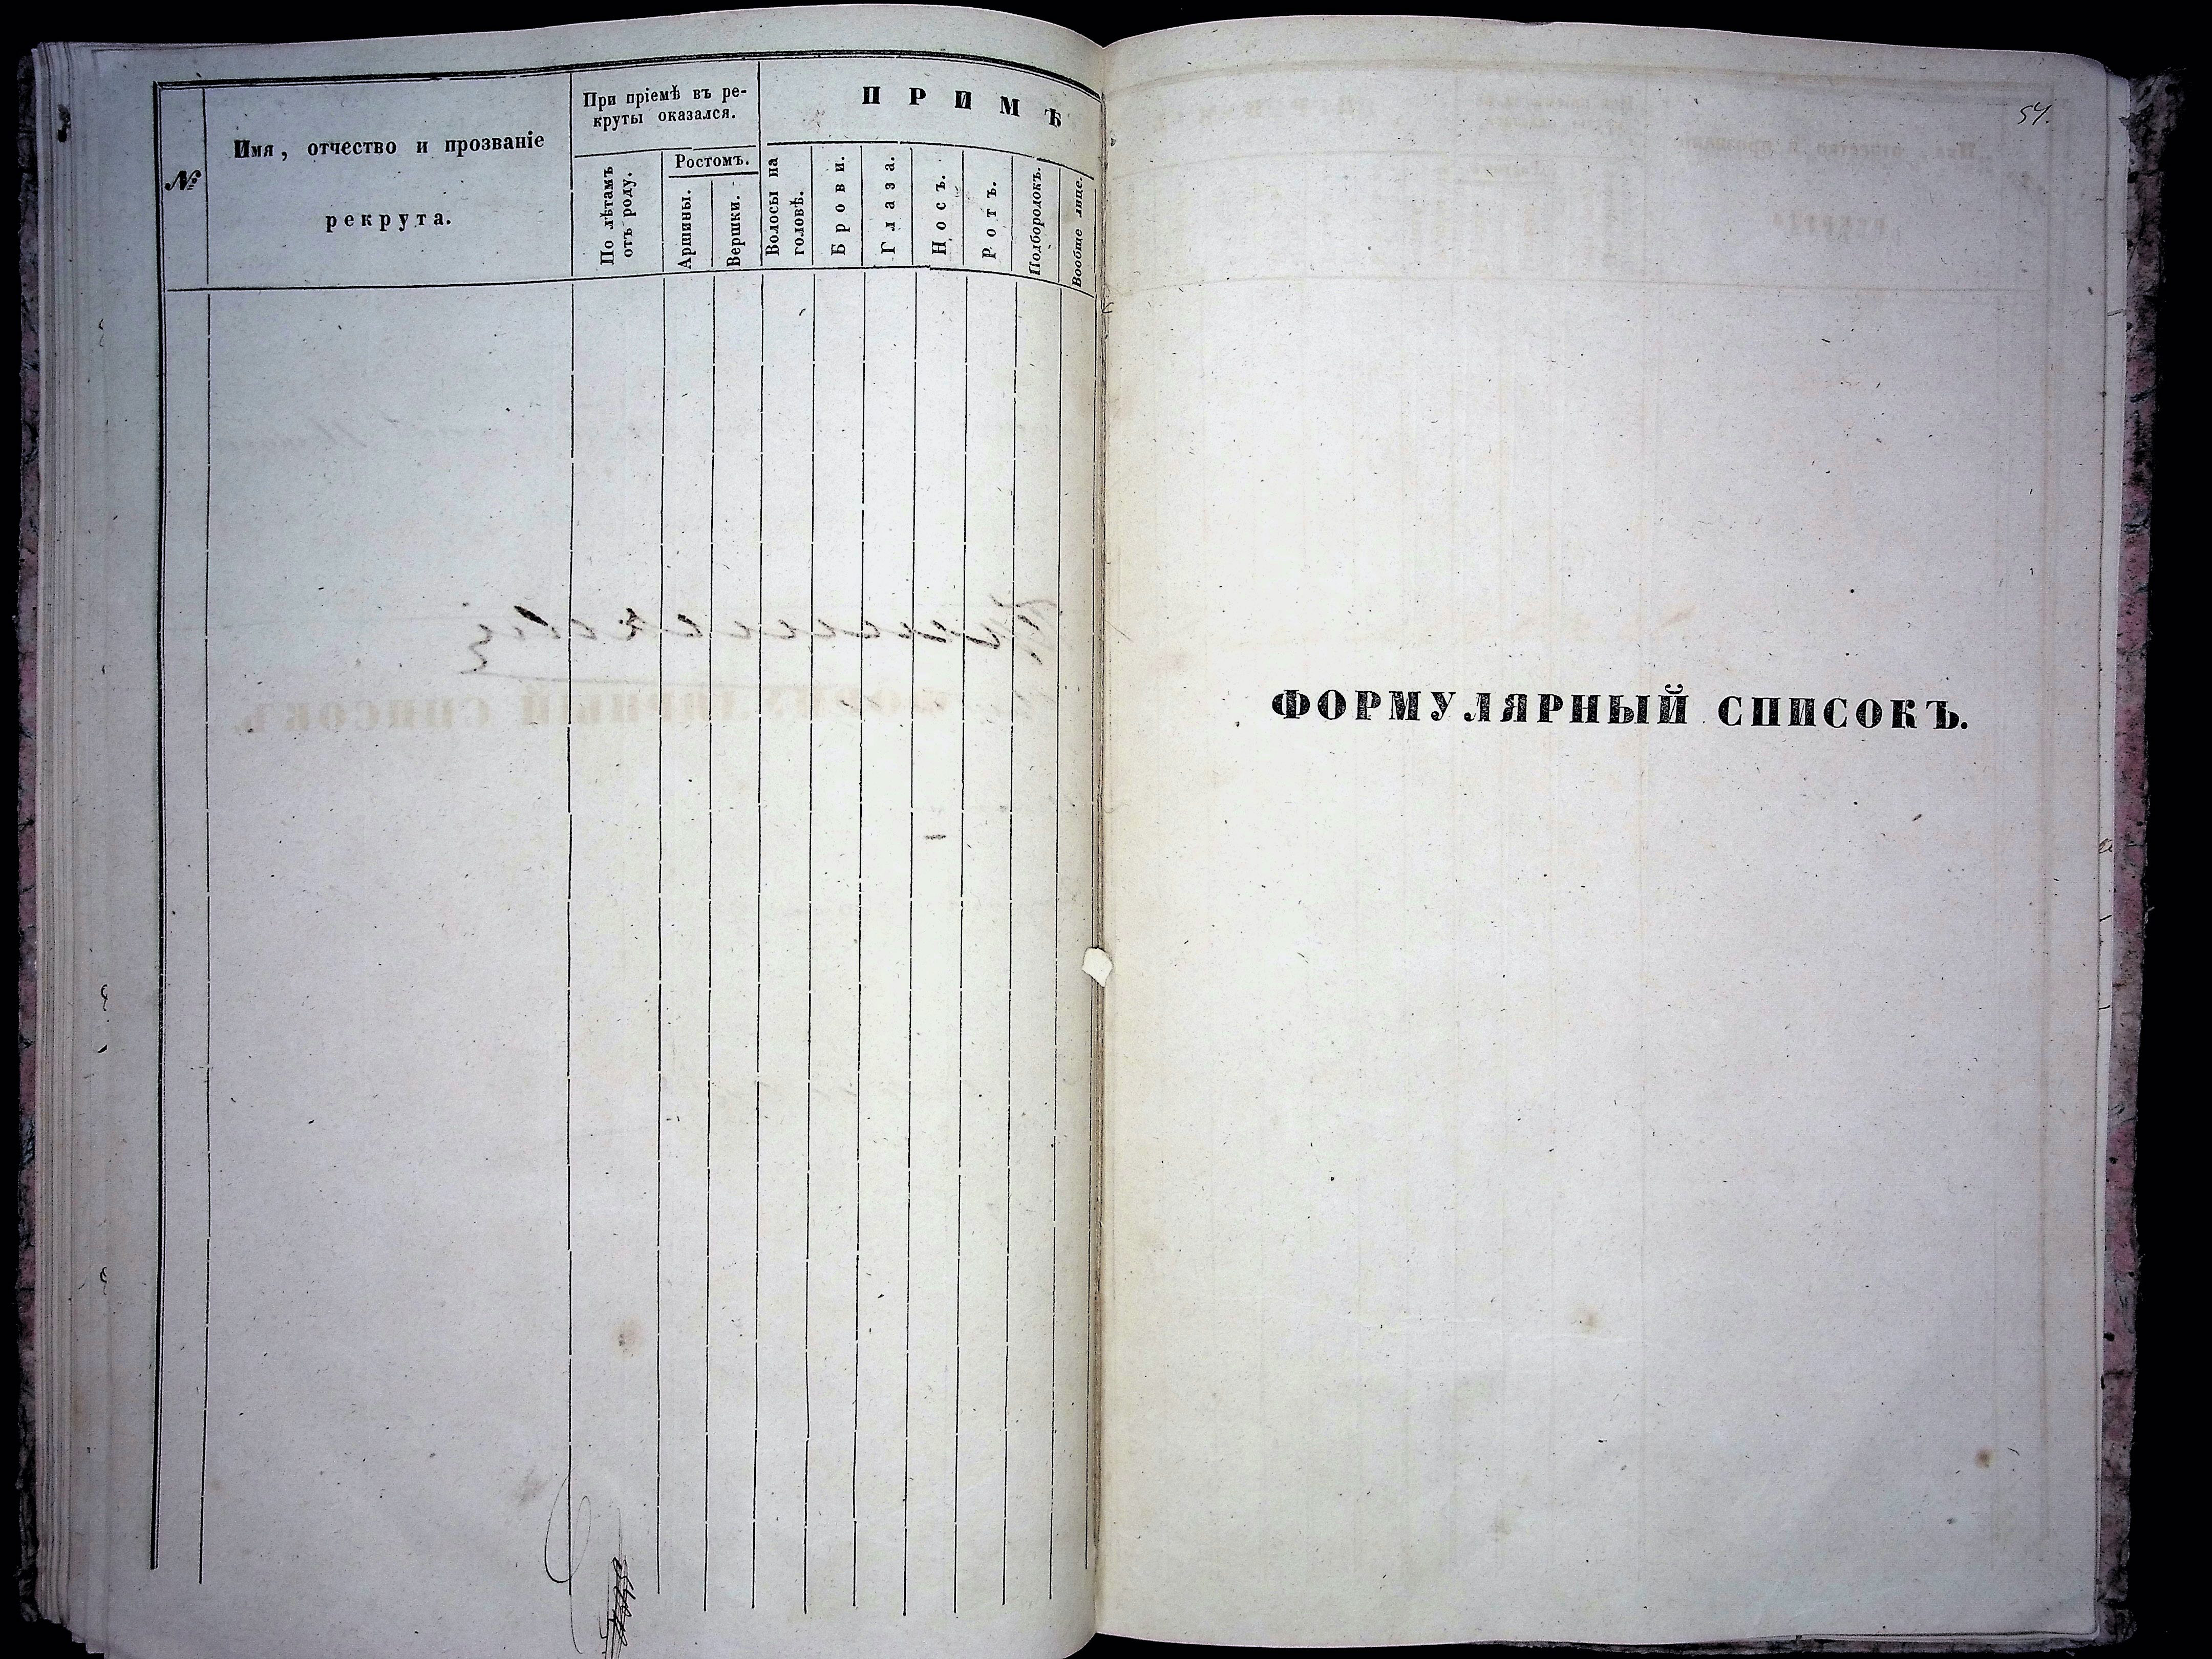 №
Имя, отчество и прозваніе
рекрута.
При пріемѣ въ ре-
круты оказался.
По лѣтамъ
отъ роду.
Ростомъ.
Аршины.
Вершки.
ПРИМѢ
Волосы на
головѣ.
Брови.
Глаза.
Носъ.
Ротъ.
Подбородокъ.
Вообще лице.
54.
ФОРМУЛЯРНЫЙ СПИСОКЪ.